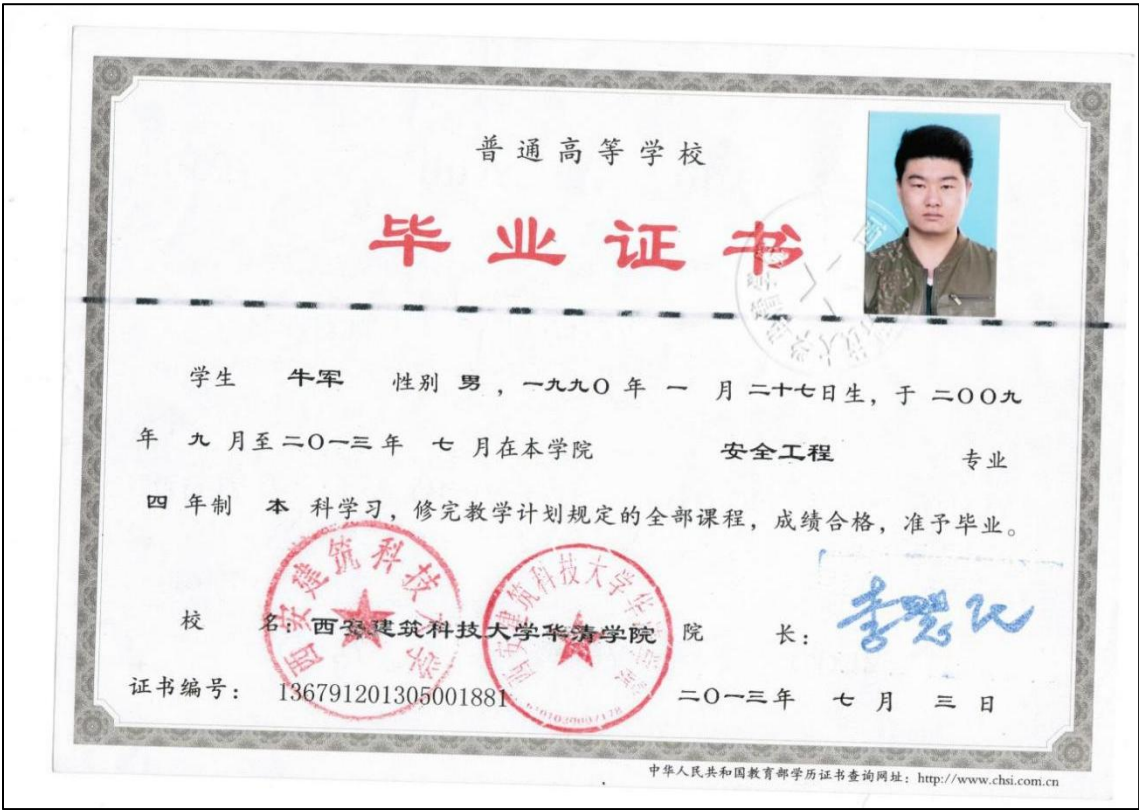 普通高等学校
毕业证书
学生 牛军 性别 男，一九九〇年 一 月 二十七日生，于 二〇〇九
年 九 月至 二〇一三 年 七 月在本学院 安全工程 专业
四 年制 本 科学习，修完教学计划规定的全部课程，成绩合格，准予毕业。
西安建筑科技大学
西安建筑科技大学华清学院
校 名：西安建筑科技大学华清学院 院 长：
证书编号： 136791201305001881 二〇一三年 七 月 三 日
中华人民共和国教育部学历证书查询网址：http://www.chsi.com.cn